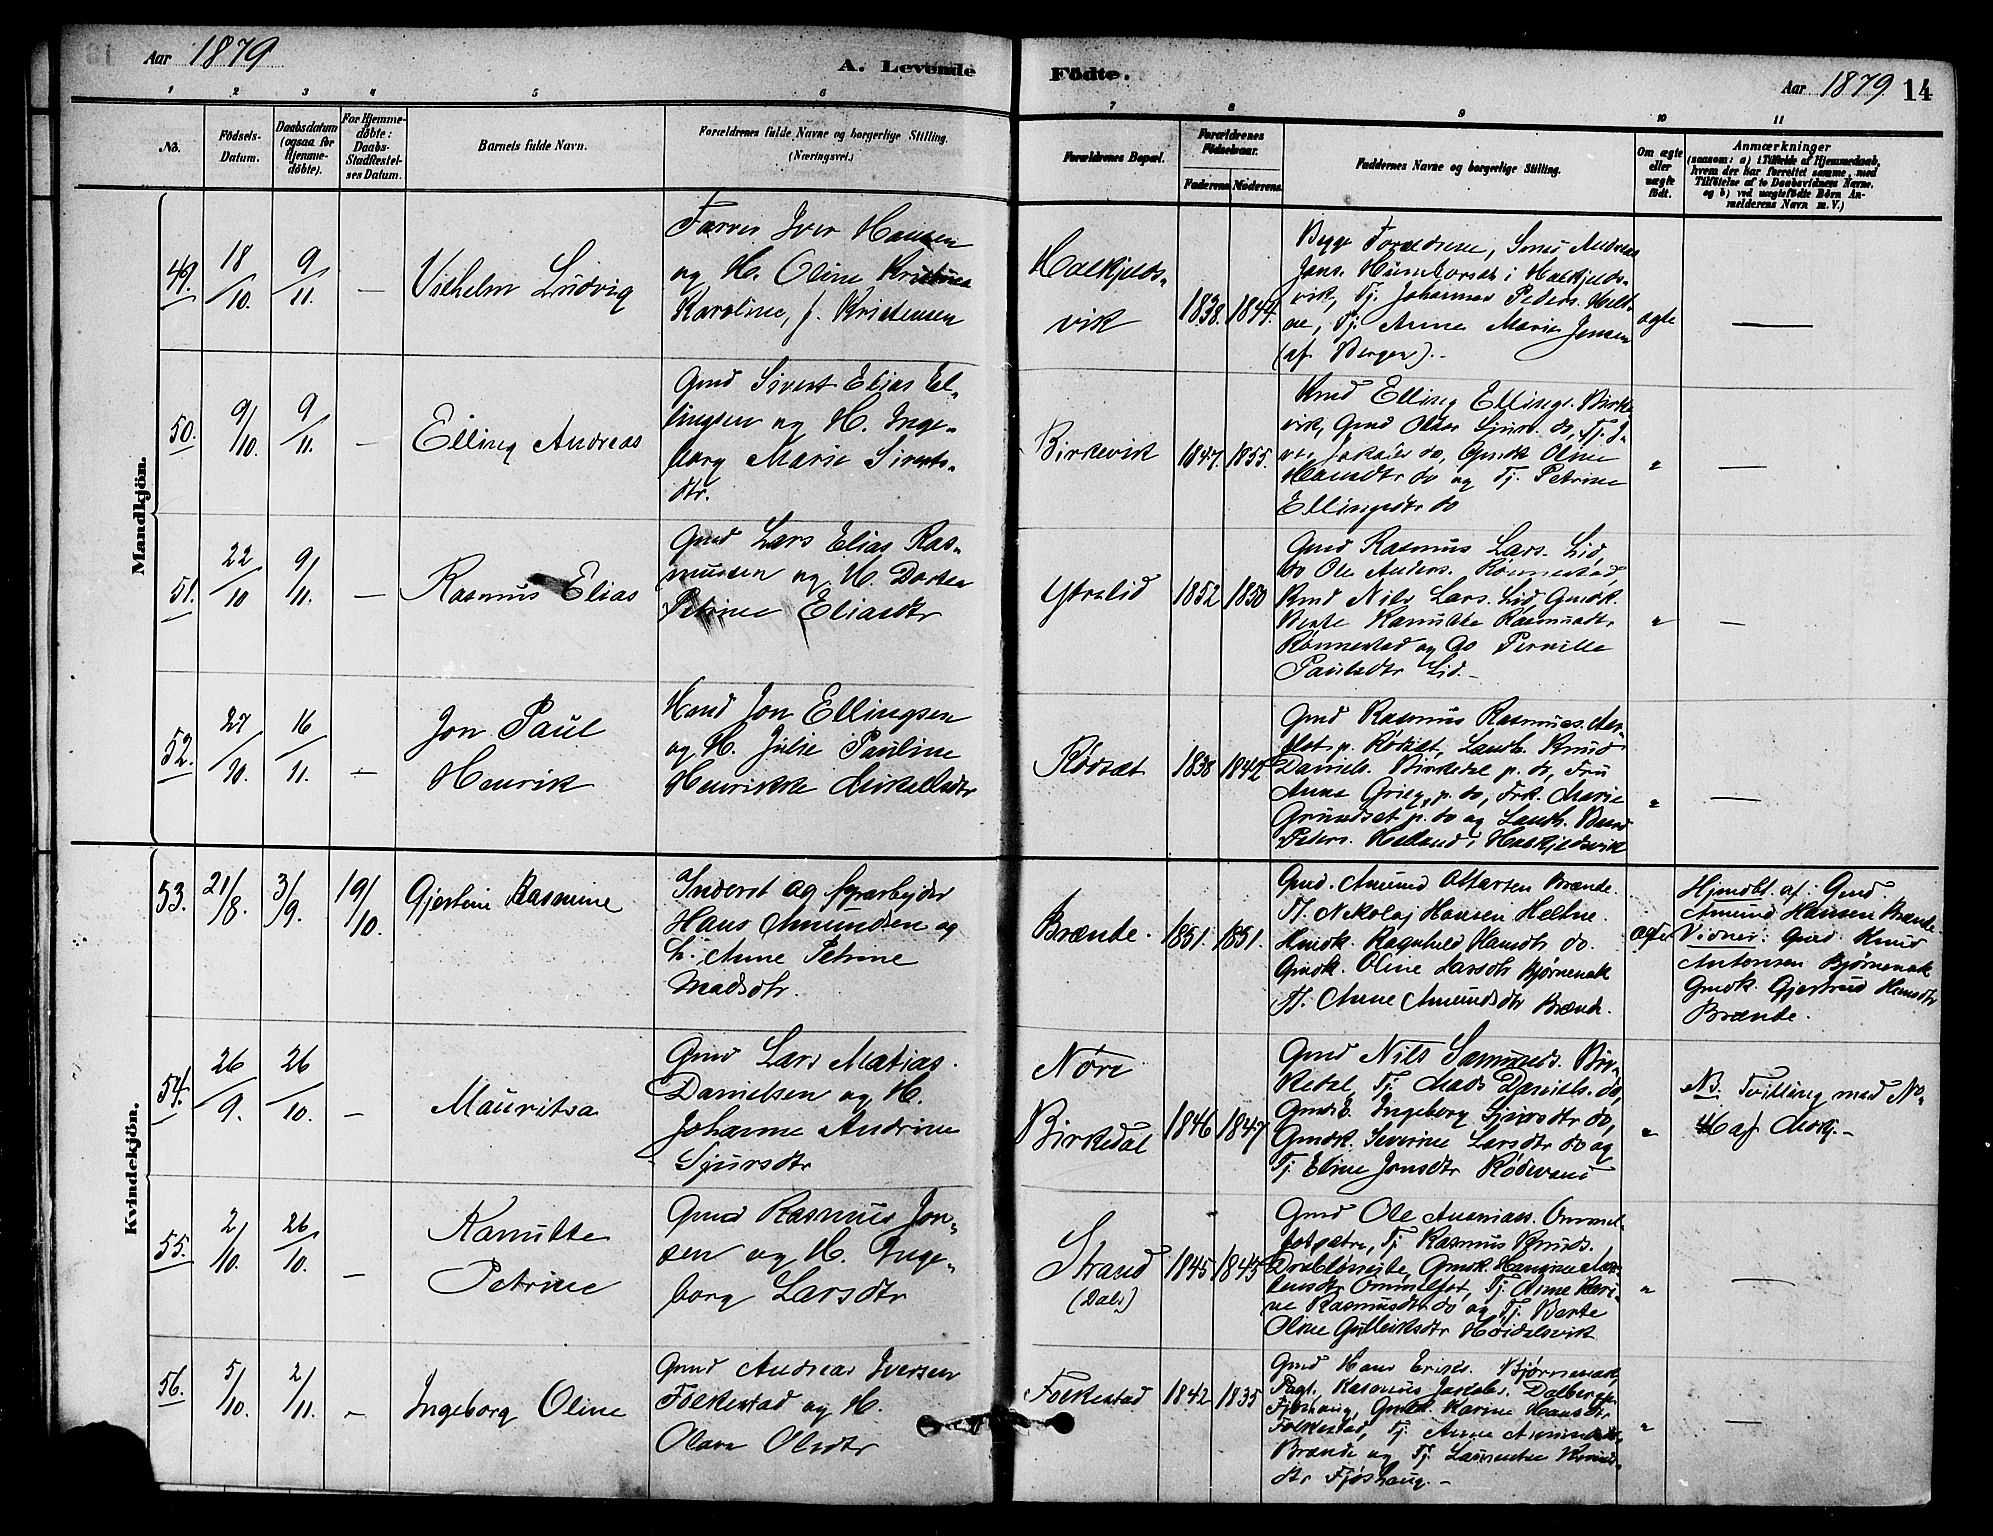 Aar 1879
A. Levende
Födte.
Aar 1879
14
1 2 3 4 5 6 7 8 9 10 11
No.
Födsels-
Datum.
Daabsdatum
(ogsaa for
Hjemme-
döbte).
For Hjemme-
döbte:
Daabs-
Stadfæstel-
ses Datum.
Barnets fulde Navn.
Forældrenes fulde Navne og borgerlige Stilling.
(Næringsvei.)
Forældrenes Bopæl.
Forældrenes
Födselsaar.
Faderens Moderens
Faddernes Navne og borgerlige Stilling.
Om ægte
eller
uægte
födt.
Anmærkninger
(saasom: a) i Tilfælde af Hjemmedaab,
hvem der har forrettet samme, med
Tilföielse af to Daabsvidners Navne.
og b) ved uægtefödte Börn An-
melderens Navn m. V.)
Mandkjön.
49.
18/10.
9/11.
—
Vilhelm Ludvig
Farver Iver Hansen
og H. Oline Kristine
Karoline, f. Kristensen
Halkjelds-
vik
1838. 1844.
Begge Forældrene, Smed Andreas
Jans. Halkjelds-
vik, Tj. Johannes Peders. Helt-
ne, Tj. Anne Marie Jensen
(af Bergen).-
ægte
—
50.
9/10
9/11.
—
Elling Andreas
Gmd Sivert Elias El-
lingsen og H. Inge-
borg Marie Siverts-
dtr.
Birkevik
1847. 1855.
Kmd Elling Ellings. Birke-
vik, Gmd Olaus Sjurs. do, Tj. I-
do, Gmdk Oline
Hansdtr do og Tj. Petrine
Ellingsdtr do
"
—
51.
22/10
9/11.
—
Rasmus Elias
Gmd Lars Elias Ras-
mussen og H. Dorthea
Petrine Eliasdtr
Ytrelid
1852 1850
Gmd Rasmus Lars. Lid,
do Ole Anders. Rønnestad,
Kmd Nils Lars. Lid Gmdk.
Bente Kanutte Rasmusdtr
Rønnestad og do Pernille
Paulsdtr Lid.-
"
—
52.
27/10.
16/11.
—
Jon Paul
Henrik
Hmd Jon Ellingsen
og H. Julie Pauline
Henrikke Mikelsdtr
Rødsæt
1838 1842
Gmd Rasmus Rasmuss. Aar-
flot p. Rødsæt, Landh. Knud
Daniels. Birkedal p. do, Fru
Anna Grieg, p. do, Frk. Marie
Grundset p. do og Landh. Baard
Peders. Helland i Halkjeldsvik
"
—
Kvindekjön.
53.
21/8.
3/9.
19/10.
Gjertine Rasmine
Inderst og
Hans Amundsen og
h. Anne Petrine
Madsdtr.
Brænde.
1851. 1851.
Gmd. Amund Ottarsen Brænde.
Tj. Nikolaj Hansen Heltne.
Hmdk. Ragnhild Hansdtr do.
Gmdk. Oline Larsdtr Bjørnenak
Tj. Anne Amundsdtr Brænde.
ægte
Hjmdbt. af: Gmd.
Amund Hansen Brænde.
Vidner: Gmd. Knud
Antonsen Bjørnenak
Gmdk. Gjertrud Hansdtr
Brænde.
54.
26/9.
26/10.
—
Mauritsa
Gmd Lars Matias
Danielsen og H.
Johanne Andrine
Sjursdtr
Nøre
Birkedal
1846 1847
Gmd Nils Samunds. Bir-
kedal, Tj. Mads Daniels. do,
Gmdk Ingeborg Sjursdtr do,
Gmdk. Severine Larsdtr do og
Tj Eline Jonsdtr Rødsvand
"
NB. Tvilling med No
af Mdkj.-
55.
2/10.
26/10.
—
Kanutte
Petrine
Gmd Rasmus Jon-
sen og H. Inge-
borg Larsdtr
Strand
(Dals)
1845 1845
Gmd Ole Ananiass. Ommel-
fotsætre, Tj Rasmus Knuds.
Drabløneite, Gmdk Hansine Mor-
tensdtr Ommelfot, Tj. Anne Kari-
ne Rasmusdtr do og Tj. Berte
Oline Gulleiksdtr Høidalsvik
"
—
56.
5/10.
2/11.
—
Ingeborg Oline
Gmd Andreas Iversen
Folkestad og H.
Olave Olsdtr
Folkestad
1842 1835
Gmd Hans Eriks. Bjørnenak,
Pagt. Rasmus Jakobs. Dalberg
Fjøshaug, Gmdk Karine Hansdtr
Folkestad, Tj. Anne Amundsdtr
Brænde og Tj Laurentse Knuds-
dtr Fjøshaug.-
"
—